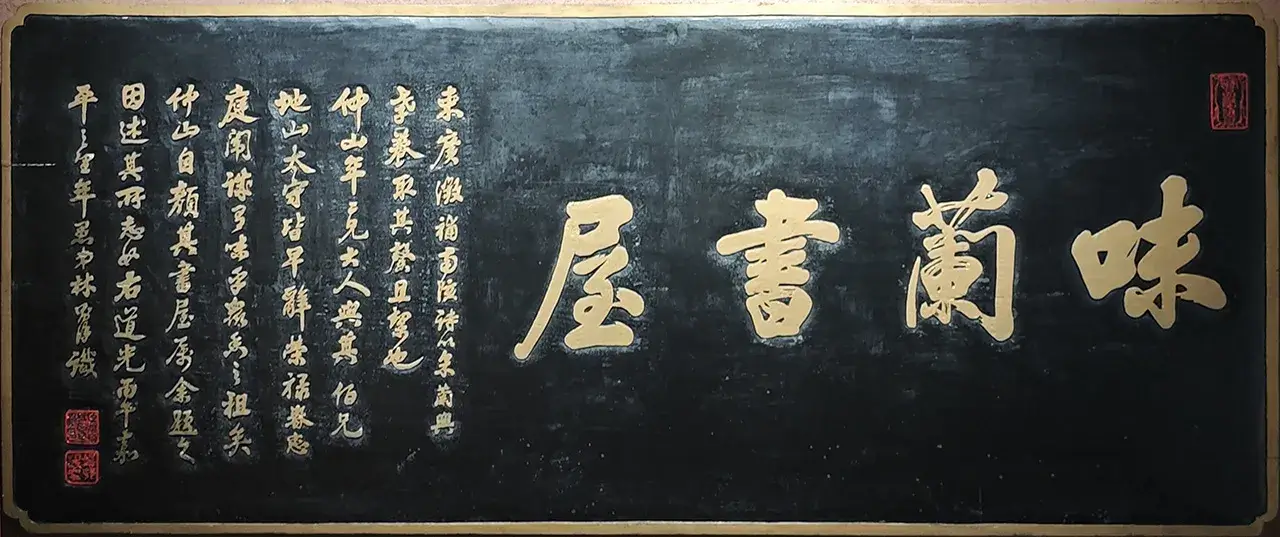 味蘭書屋
束廣微補南陔詩以采蘭興
孝養取其馨且絜也
仲山年二兄大人與其伯兄
地山太守皆早辭榮祿眷戀
庭闈誠有味乎矣
仲山自顏其書屋屬余題之
因述其所志如右道光丙午嘉
平之望年愚弟林則徐識